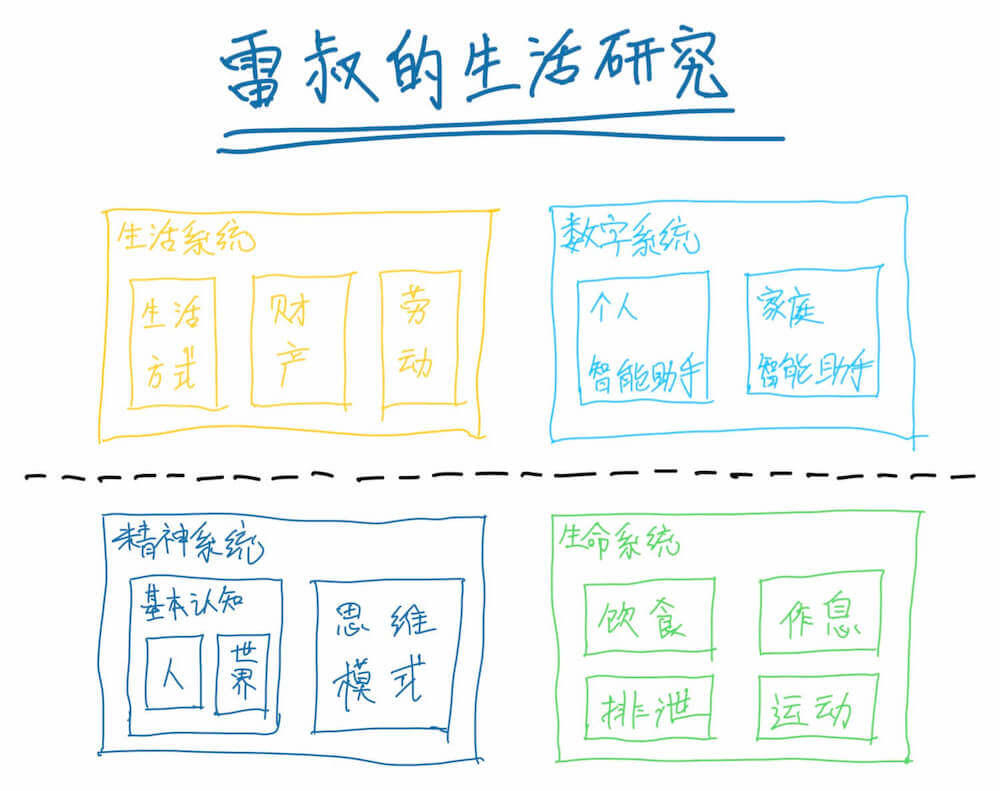 雷叔的生活研究
生活系统
生活
方式
财
产
劳
动
数字系统
个人
智能助手
家庭
智能助手
精神系统
基本认知
人
世
界
思维
模式
生命系统
饮食
作息
排泄
运动